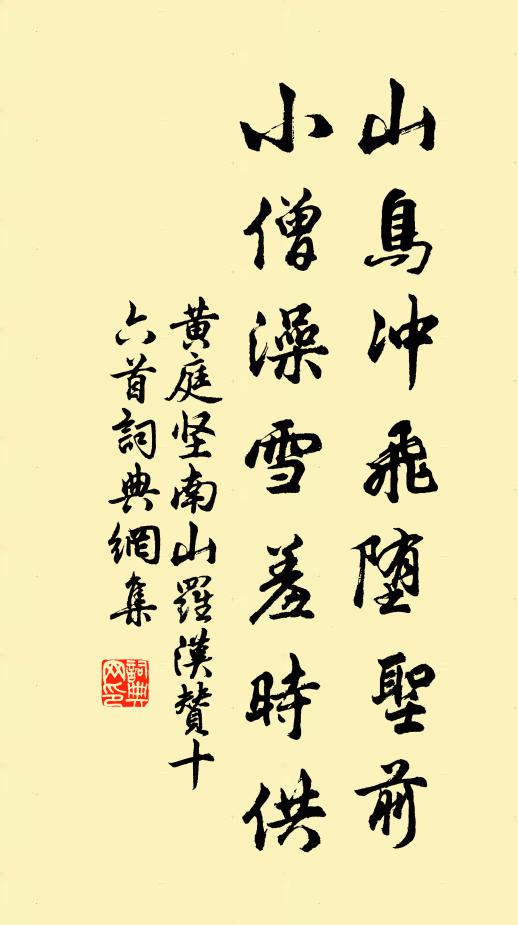 山鳥冲飛堕聖前
小僧澡雪羞時供
黃庭坚南山羅漢贊十
六首詞典網集
詞典网印